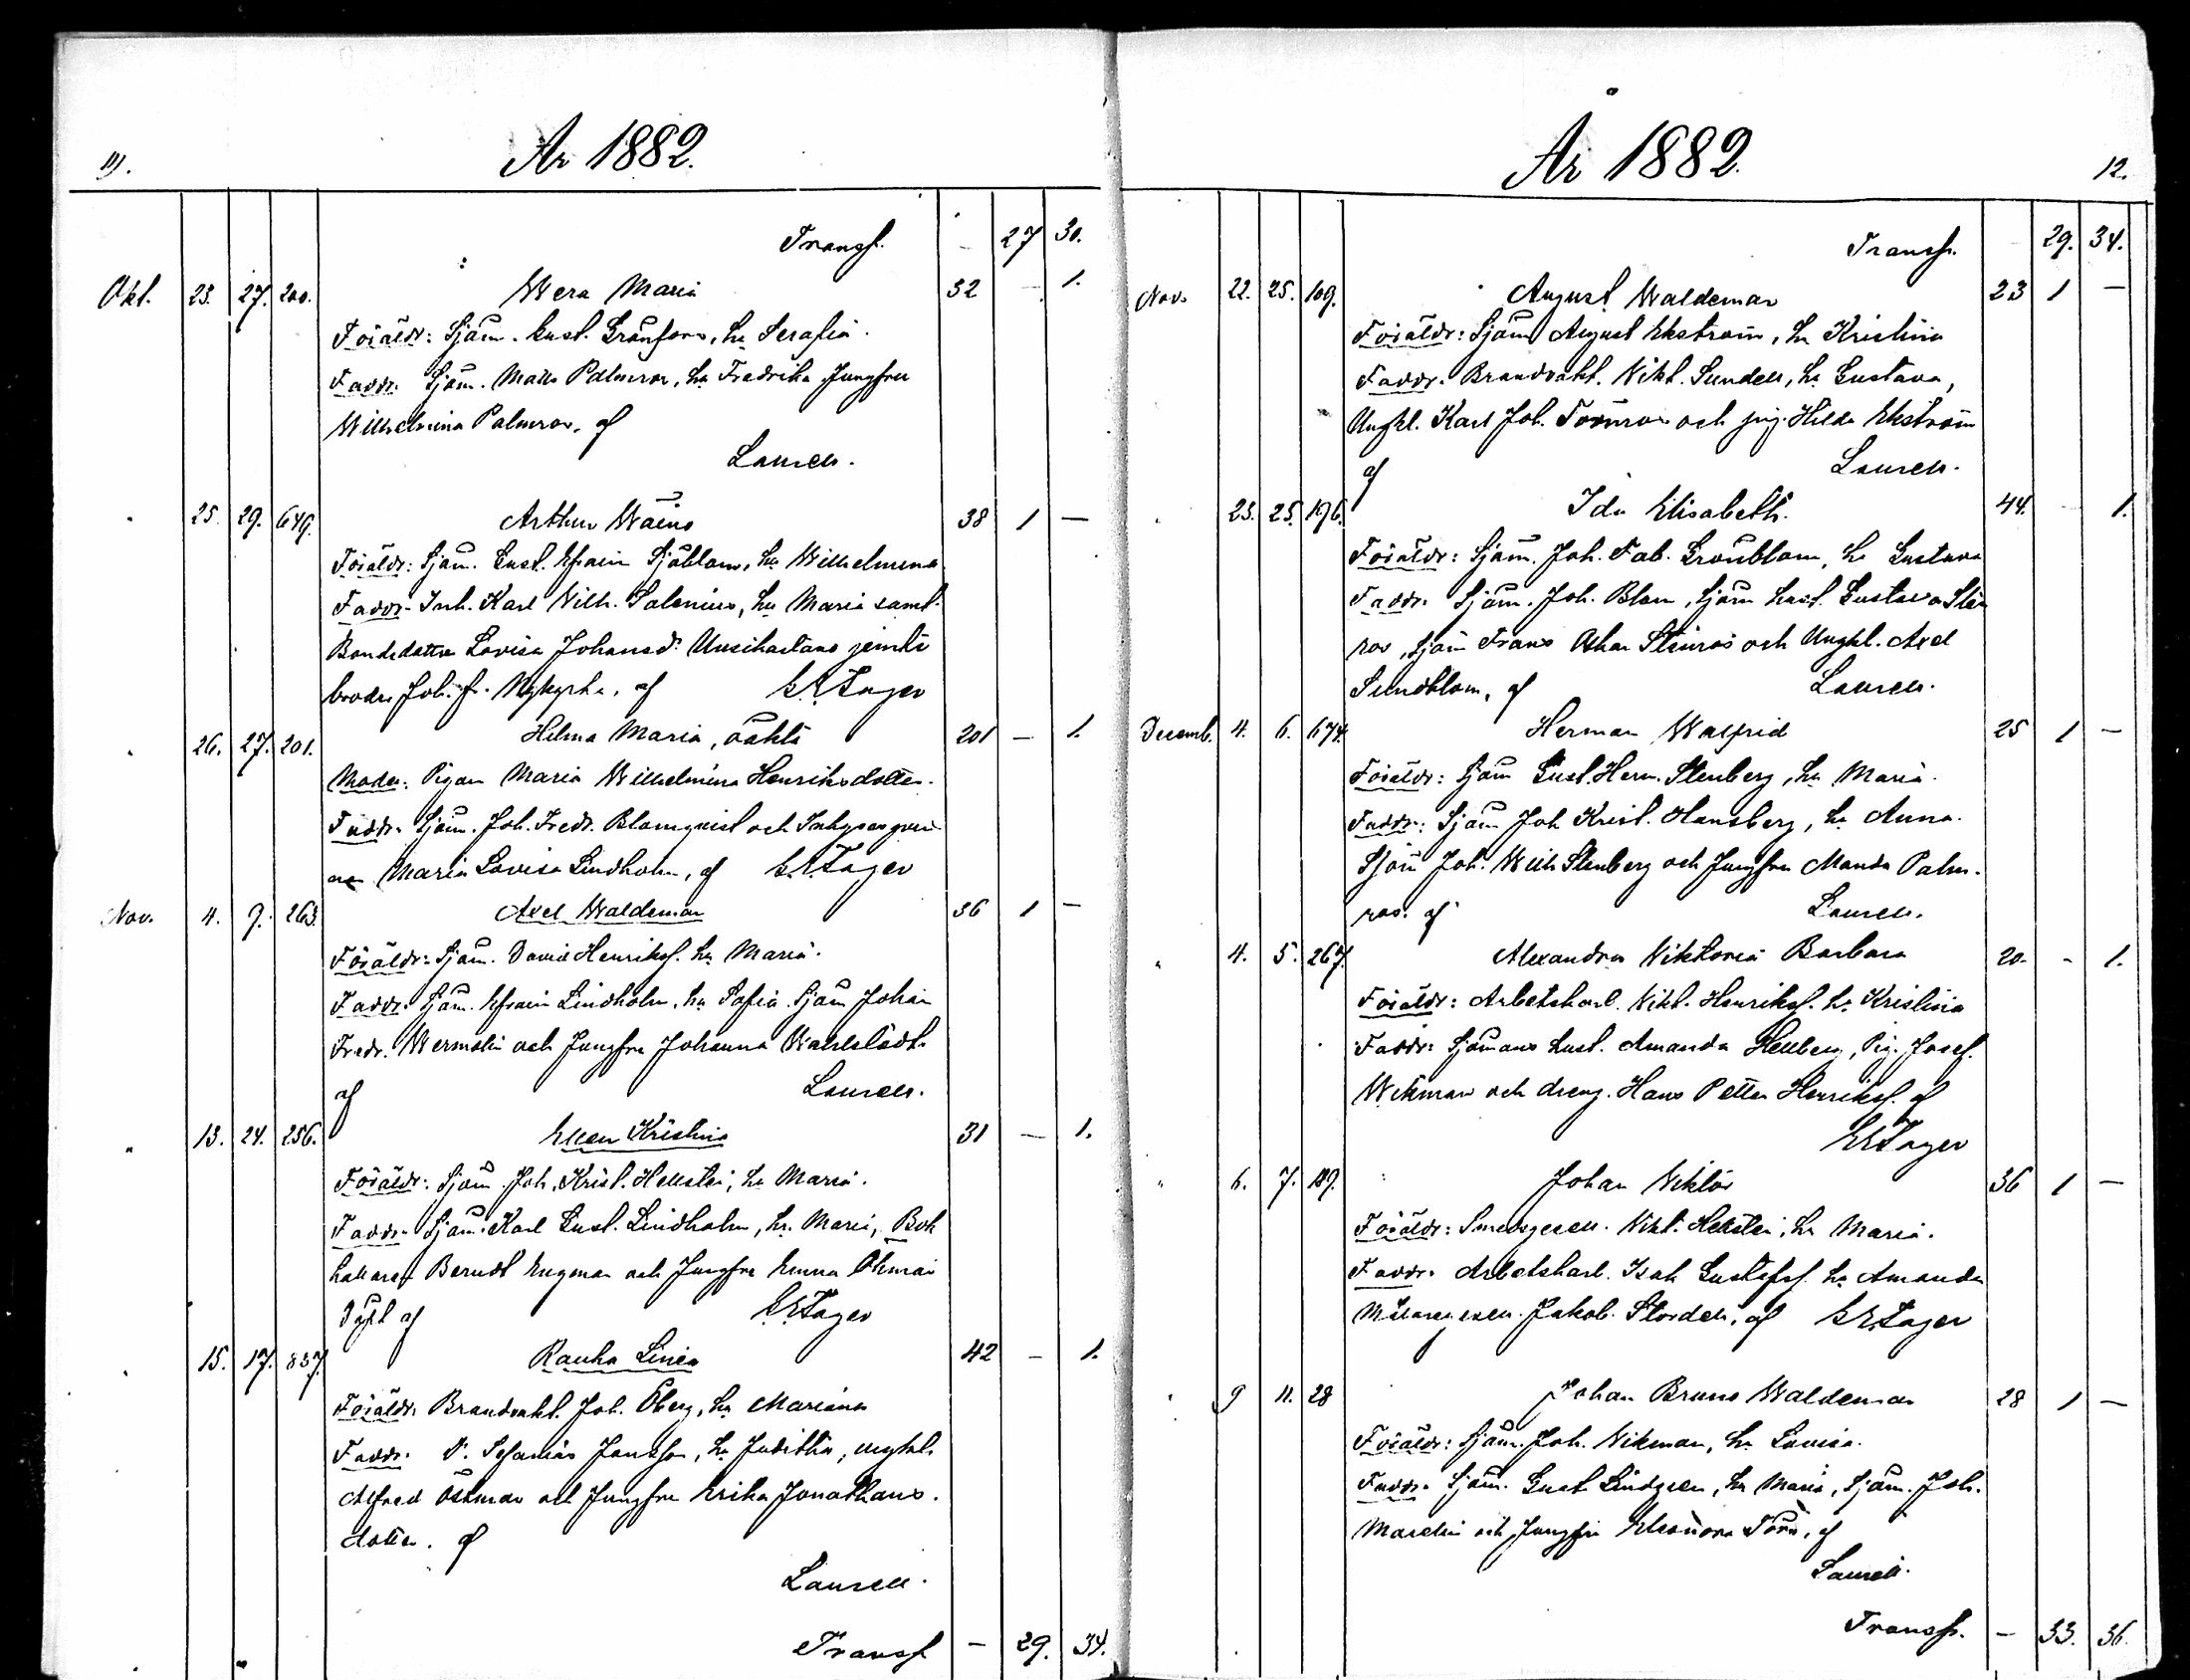 11.
År 1882.
Transp. - 27 30.
Okt. 23. 27. 200. Wera Maria 32 - 1.
Föräldr: Sjöm. Gust. Grönfors, h. Serafia.
Faddr. Sjöm. Matts Palmros, h. Fredrika Jungfru
Wilhelmina Palmros, af
Laurell.
" 25. 29. 649. Arthur Wäinö 38 1 -
Föräldr: Sjöm. Gust. Efraim Sjöblom, h. Wilhelmina
Faddr. Inh. Karl Wilh. Salenius, h. Maria samt
Bondedottr Lovisa Johansd. Uusikartano jemte
brodr. Joh. fr. Nykyrka, af
" 26. 27. 201. Hilma Maria, oäkta 201 - 1.
Moder: Pigan Maria Wilhelmina Henriksdotter.
Faddr. Sjöm. Joh. Fredr. Blomqvist och
Maria Lovisa Lindholm, af
Nov. 4. 9. 263. Axel Waldemar 36 1 -
Föräldr: Sjöm. David Henriksf. h. Maria.
Faddr. Sjöm. Efraim Lindholm, h. Sofia. Sjöm Johan
Fredr. Wermelin och Jungfru Johanna Wahlstedt
af Laurell.
" 13. 24. 256. Ellen Kristina 31 - 1.
Föräldr: Sjöm. Joh. Krist. Hellsten, h. Maria.
Faddr. Sjöm. Karl Gust. Lindholm, h. Maria, Bok
hållaren Berndt Engman och Jungfru Emma
af
" 15. 17. 837. Rauha Linea 42 - 1.
Föräldr. Brandvakt. Joh. Öberg, h. Mariana
Faddr. Jonsson, h. Juditha, ungkarl
Alfred Östman och Jungfru Erika Jonathans
dotter. af
Laurell.
Transp - 29. 34.
År 1882.
12.
Transp. 29. 34.
Nov. 22. 25. 109. August Waldemar 23 1 -
Föräldr: Sjöm August Ekström, h. Kristina
Faddr. Brandvakt. Vikt. Sundell, h. Gustava,
Ungkl. Karl Joh. Törnros och jgfr Hilda Ekström
af Laurell.
" 23. 25. 196. Ida Elisabeth. 44. - 1.
Föräldr: Sjöm. Joh. Fab. Grönblom, h. Gustava
Faddr. Sjöm. Joh. Blom, Sjöm hust. Gustava Sten
ros, Sjöm Frans Oskar Stenros och Ungkl. Axel
Sundblom, af Laurell.
Decemb. 4. 6. 674. Herman Walfrid 25 1 -
Föräldr: Sjöm Gust. Herm. Stenberg, h. Maria.
Faddr: Sjöm Joh Krist. Hansberg, h. Anna.
Sjöm Joh. Wilh Stenberg och Jungfru Manda Palm-
ros. af Laurell.
" 4. 5. 267. Alexandra Viktoria Barbara 20. - 1.
Föräldr: Arbetskarl. Vikt. Henriksf. h. Kristina
Faddr. Sjömans hust. Amanda Hellberg, Pig. Josef.
Wikman och dreng. Hans Petter Henriksf. af
" 6. 7. 189. Johan Viktor 36 1 -
Föräldr: Smedgesell. Vikt. Hellsten, h. Maria.
Faddr. Arbetskarl. Isak Gustafsf. h. Amanda
Målaregesell. Jakob. Stordell, af
" 9 11. 28 Johan Bruno Waldemar 28 1 -
Föräldr: Sjöm. Joh. Wikman, h. Lovisa.
Faddr. Sjöm. Gust Lindgren, h. Maria, Sjöm. Joh.
Marelin och Jungfru Eleonora Törn, af
Laurell.
Transp. - 33. 36.